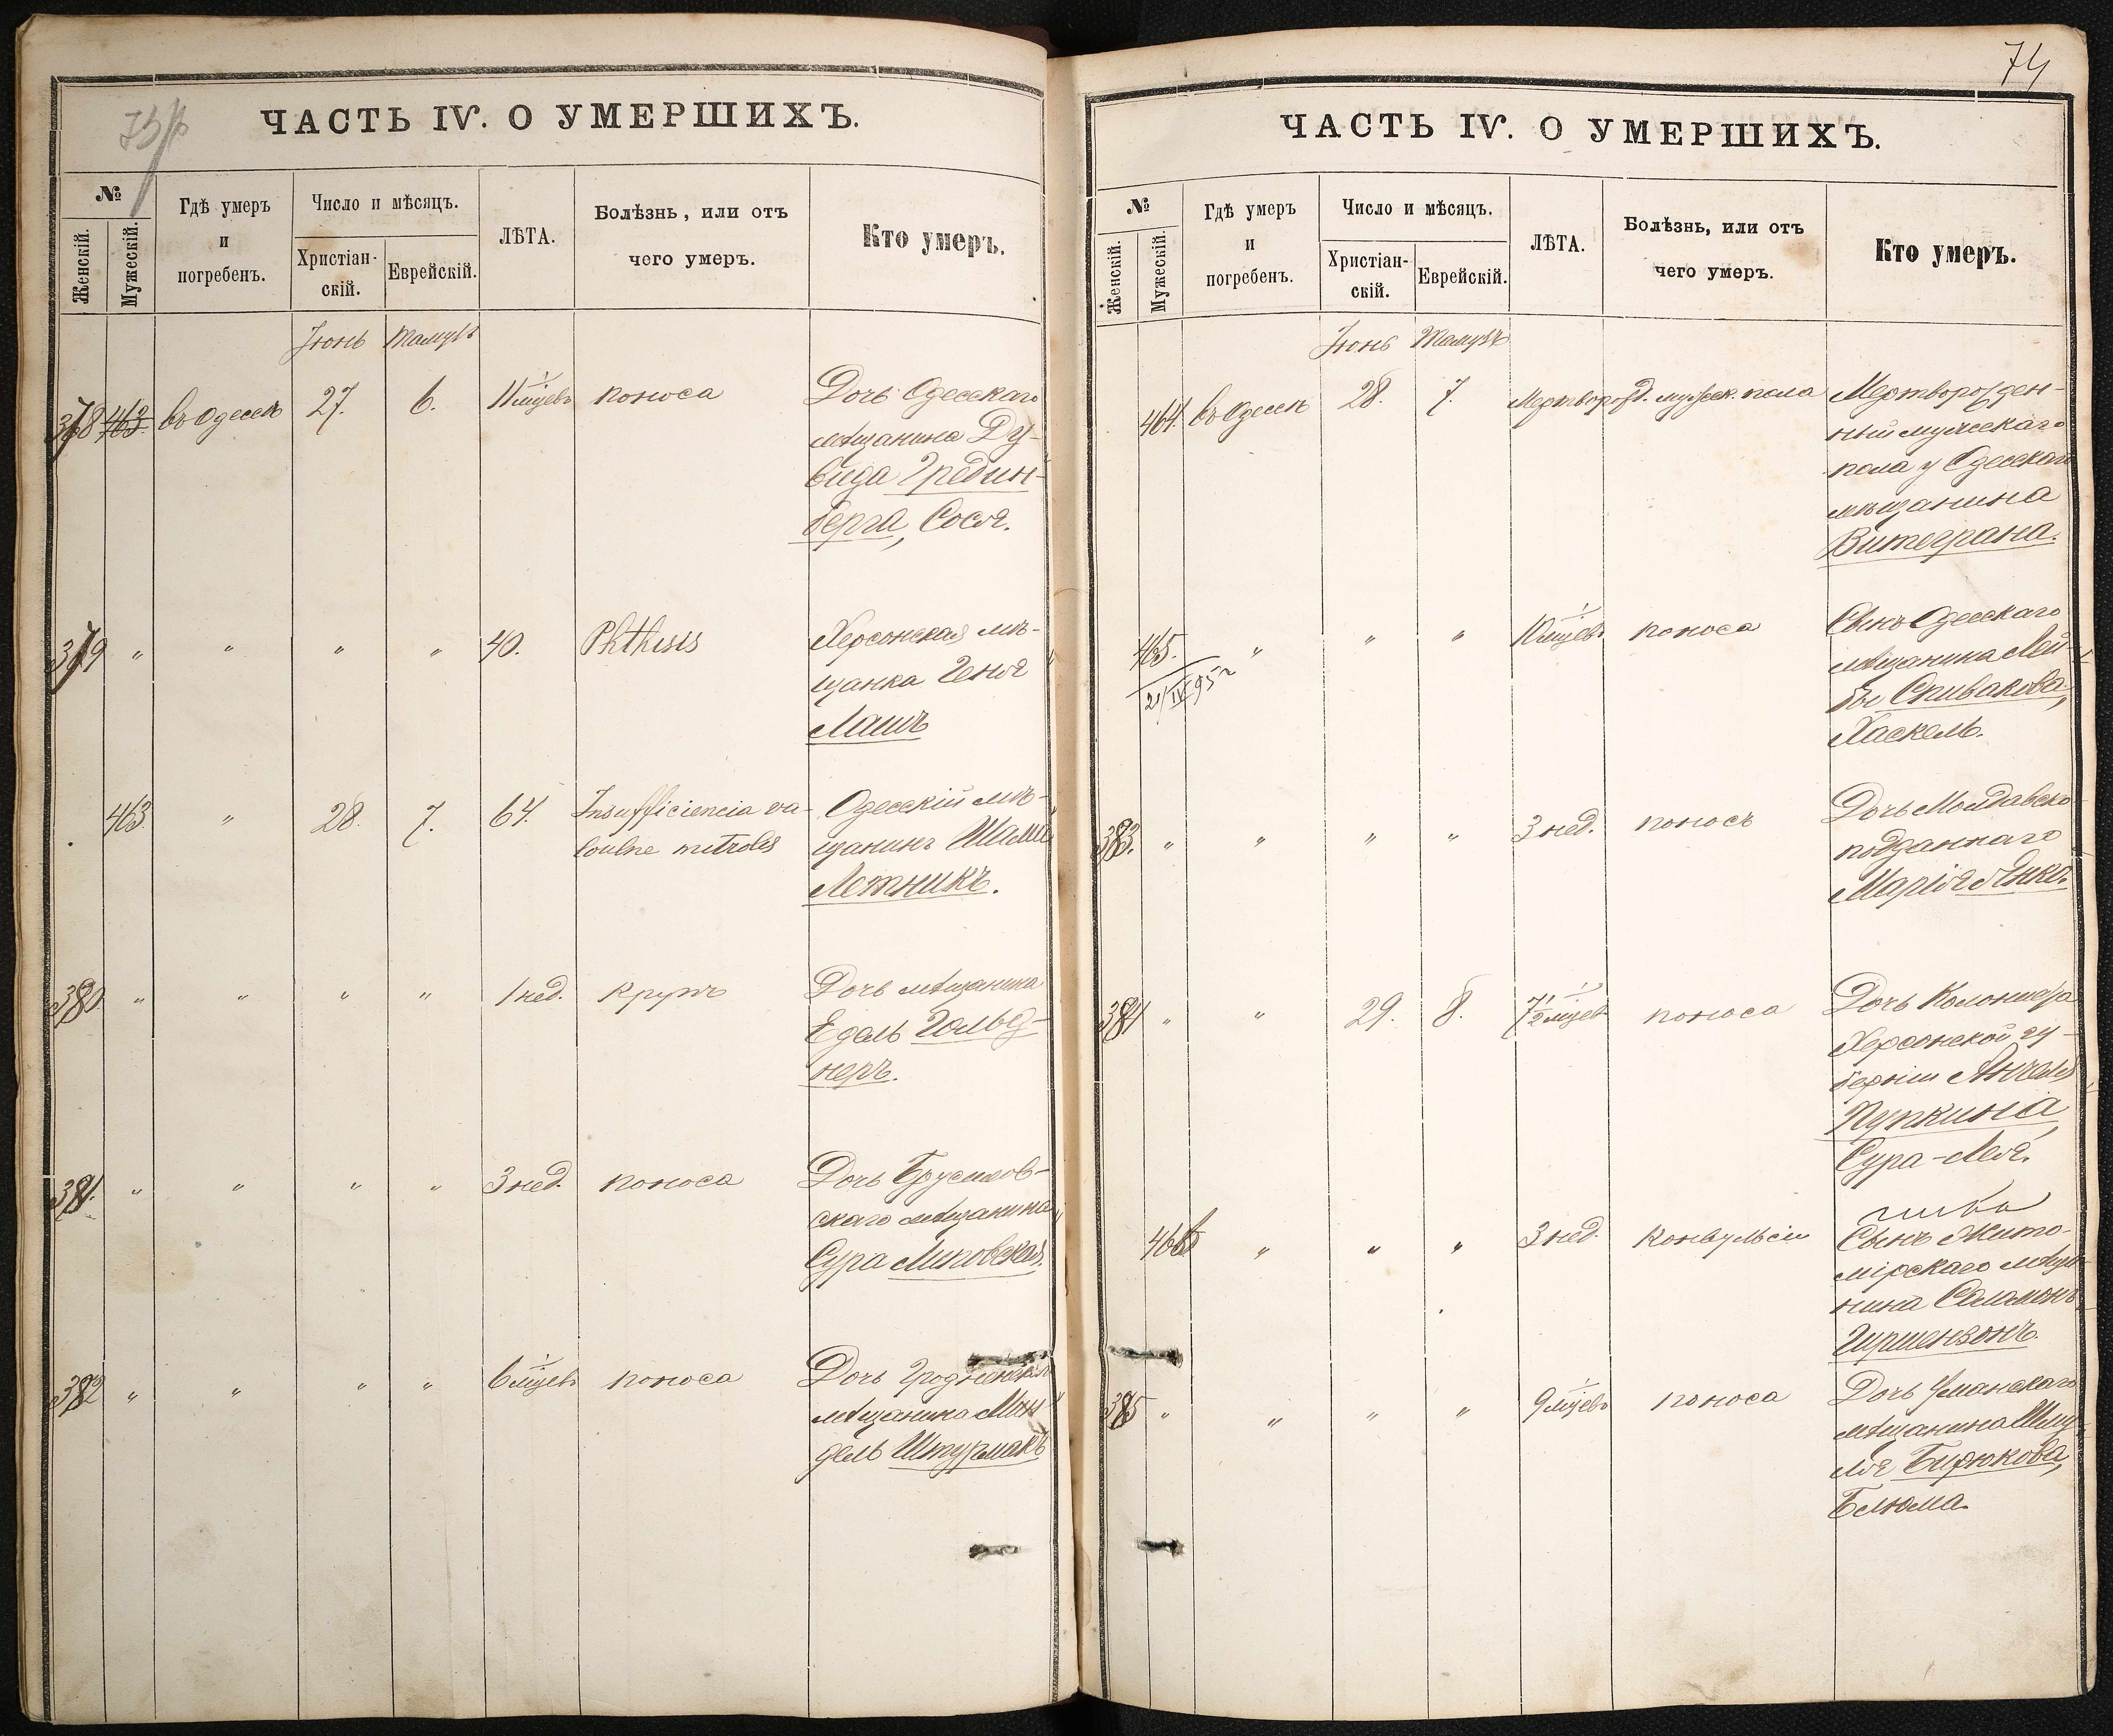 ЧАСТЬ IV. О УМЕРШИХЪ.
№
Женскій.
Мужескій.
Гдѣ умеръ
и
погребенъ.
Число и мѣсяцъ.
Христіан-
скій.
Еврейскій.
ЛѢТА.
Болѣзнь, или отъ
чего умеръ.
Кто умеръ.
Іюнь Тамузъ
378 463. въ Одессѣ 27. 6. 11 мѣсяцевъ поноса Дочь Одесскаго
мѣщанина Ду-
вида Гредин-
берга, Сося.
379 " " " " 40. Phthisis Херсонская мѣ-
щанка Геня
Лашъ
463. " 28. 7. 64. Insufficiencia va- Одесскій мѣ-
щанинъ
Летникъ.
380 " " " " 1 нед. крупъ Дочь мѣщанина
Едель Гольд-
неръ.
381. " " " " 3 нед. поноса Дочь Брусилов-
скаго мѣщанина
Сура Липовская.
382 " " " " 6 мѣсяцевъ поноса Дочь Гродненскаго
мѣщанина Мин-
дель Штурмакъ
74
ЧАСТЬ IV. О УМЕРШИХЪ.
№
Женскій.
Мужескій.
Гдѣ умеръ
и
погребенъ.
Число и мѣсяцъ.
Христіан-
скій.
Еврейскій.
ЛѢТА.
Болѣзнь, или отъ
чего умеръ.
Кто умеръ.
Іюнь Тамузъ
464. въ Одессѣ 28. 7. Мертворожд. мужеск. пола Мертворожден-
ный мужескаго
пола у Одесскаго
мѣщанина
Витеграна.
465. " " " 10 мѣсяцевъ поноса Сынъ Одесскаго
мѣщанина Лей-
бы Спивакова,
Хаскель.
383. " " " " 3 нед. поносъ Дочь Молдавско
подданнаго
Марія Янко.
384 " " 29. 8. 7½ мѣсяцев поноса Дочь Колониста
Херсонской гу-
берніи Янкеля
Пупкина,
Сура-Лея.
466 " " " 3 нед. конвульсіи Сынъ Жито-
мірскаго мѣща-
нина Саламонъ
Гиршензонъ.
385 " " " " 9 мѣсяцевъ поноса Дочь Уманскаго
мѣщанина Шму-
ля Бирюкова,
Блюма.